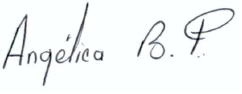 Angélica B. P.